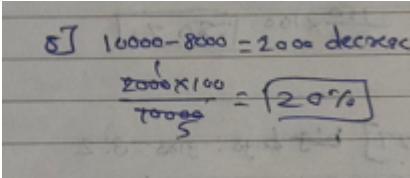 8] 10000-8000 = 2000 decrease
1
2000×100
10000 = 20%
5